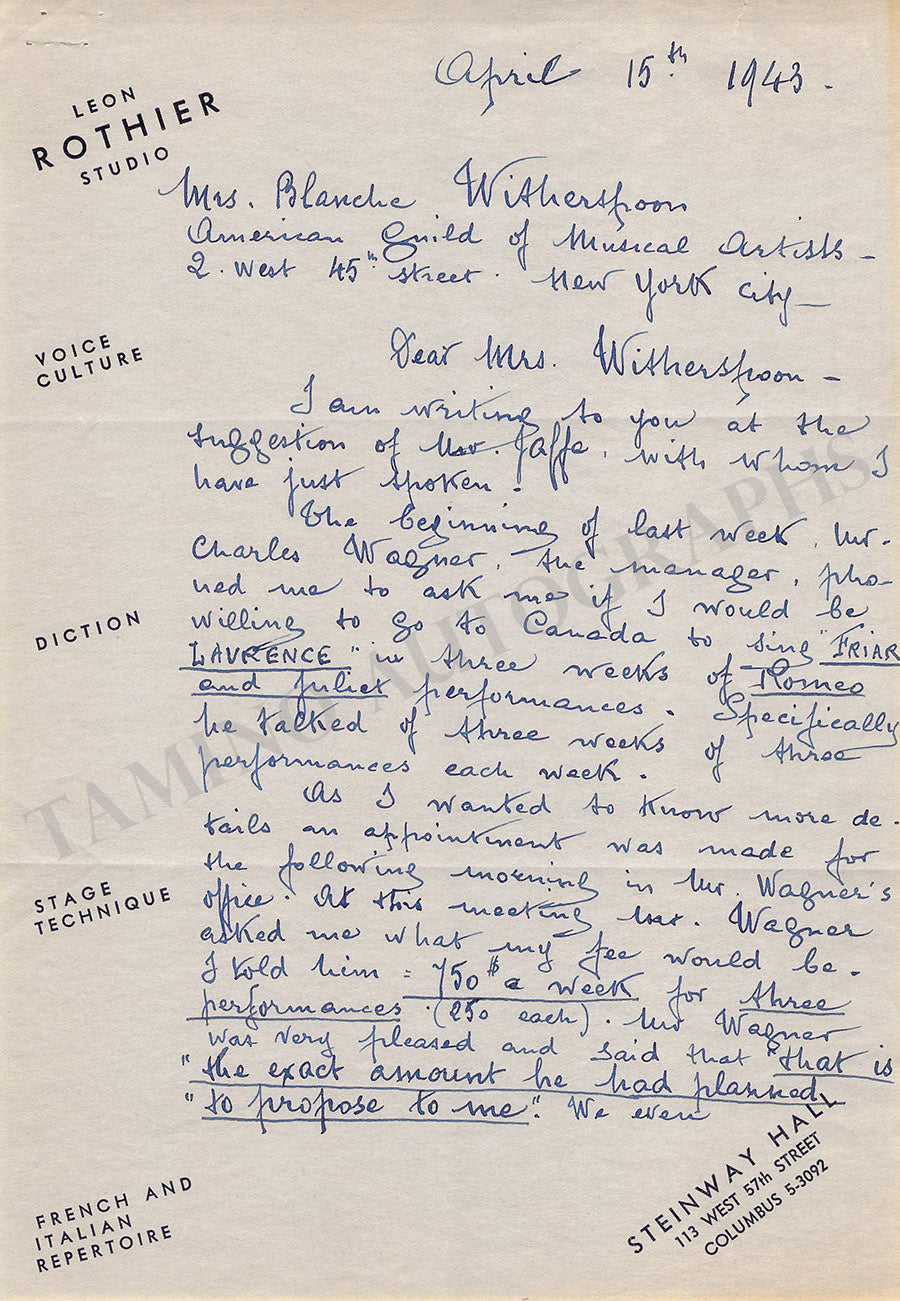 April 15th 1943.
LEON
ROTHIER
STUDIO
Mrs. Blanche Witherspoon
American Guild of Musical Artists -
2. West 45th street. New York City -
VOICE
CULTURE
Dear Mrs. Witherspoon -
I am writing to you at the
suggestion of Mr. Jaffe, with whom I
have just spoken.
The beginning of last week, Mr.
Charles Wagner, the manager, pho-
ned me to ask me if I would be
DICTION
willing to go to Canada to sing "FRIAR
LAVRENCE" in three weeks of Romeo
and Juliet performances. Specifically
he talked of three weeks of three
performances each week.
As I wanted to know more de-
tails an appointment was made for
the following morning in Mr. Wagner's
STAGE
TECHNIQUE
office. At this meeting Mr. Wagner
asked me what my fee would be.
I told him = 750$ a week for three
performances (250 each). Mr Wagner
was very pleased and said that "that is
"the exact amount he had planned
"to propose to me". We even
STEINWAY HALL
113 WEST 57th STREET
COLUMBUS 5-3092
FRENCH AND
ITALIAN
REPERTOIRE
TAMING AUTOGRAPHS